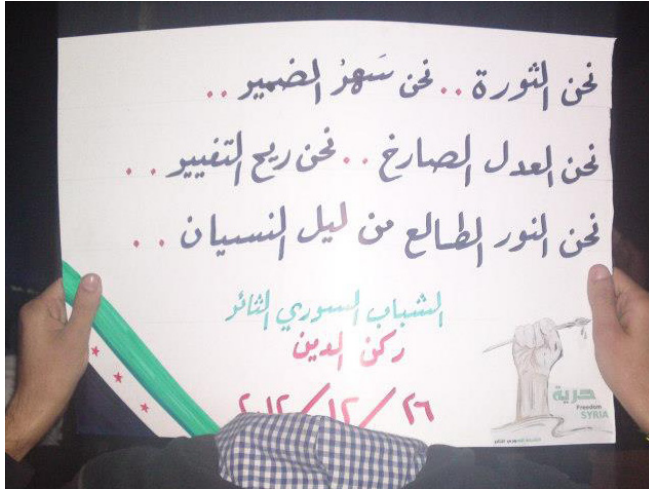 نحن الثورة .. نحن سَهرُ الضمير ..
نحن العدل الصارخ .. نحن ريح التغيير ..
نحن النور الطالع من ليل النسيان ..
الشباب السوري الثائر
ركن الدين
٢٦/١٢/٢٠١٢
حرية
Freedom
SYRIA